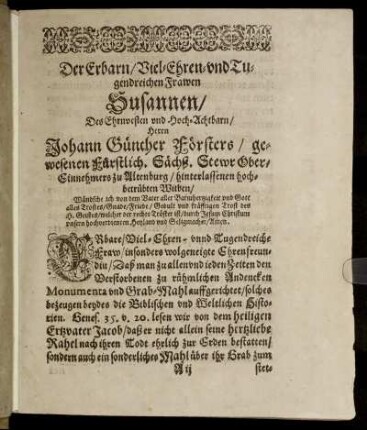 Der Erbarn/Viel-Ehren/vnd Tu-
gendreichen Frawen
Susannen/
Des Ehrnvesten vnd Hoch-Achtbarn/
Herrn
Johann Günther Försters/ ge-
wesenen Fürstlich. Sächß. Stewr Ober-
Einnehmers zu Altenburg/ hinterlassenen hoch-
betrübten Witben/
Wündsche ich von dem Vater aller Barmhertzigkeit vnd Gott
alles Trostes/Gnade/Friede/Gedult vnd kräfftigen Trost des
H. Geistes/welcher der rechte Tröster ist/durch Jesum Christum
vnsern hochverdienten Heyland vnd Seligmacher/Amen.
ERbare/Viel-Ehren- vnnd Tugendreiche
Fraw/insonders wolgeneigte Ehrenfreun-
din/Daß man zu allen vnd ieden Zeiten den
Verstorbenen zu rühmlichen Andencken
Monumenta vnd Grab-Mahl auffgerichtet/solches
bezeugen beydes die Biblischen vnd Weltlichen Histo-
rien. Genes. 35. v. 20. lesen wir von dem heiligen
Ertzvater Jacob/daß er nicht allein seine hertzliebe
Rahel nach ihren Todt ehrlich zur Erden bestatten/
sondern auch ein sonderliches Mahl über ihr Grab zum
A ij stet-